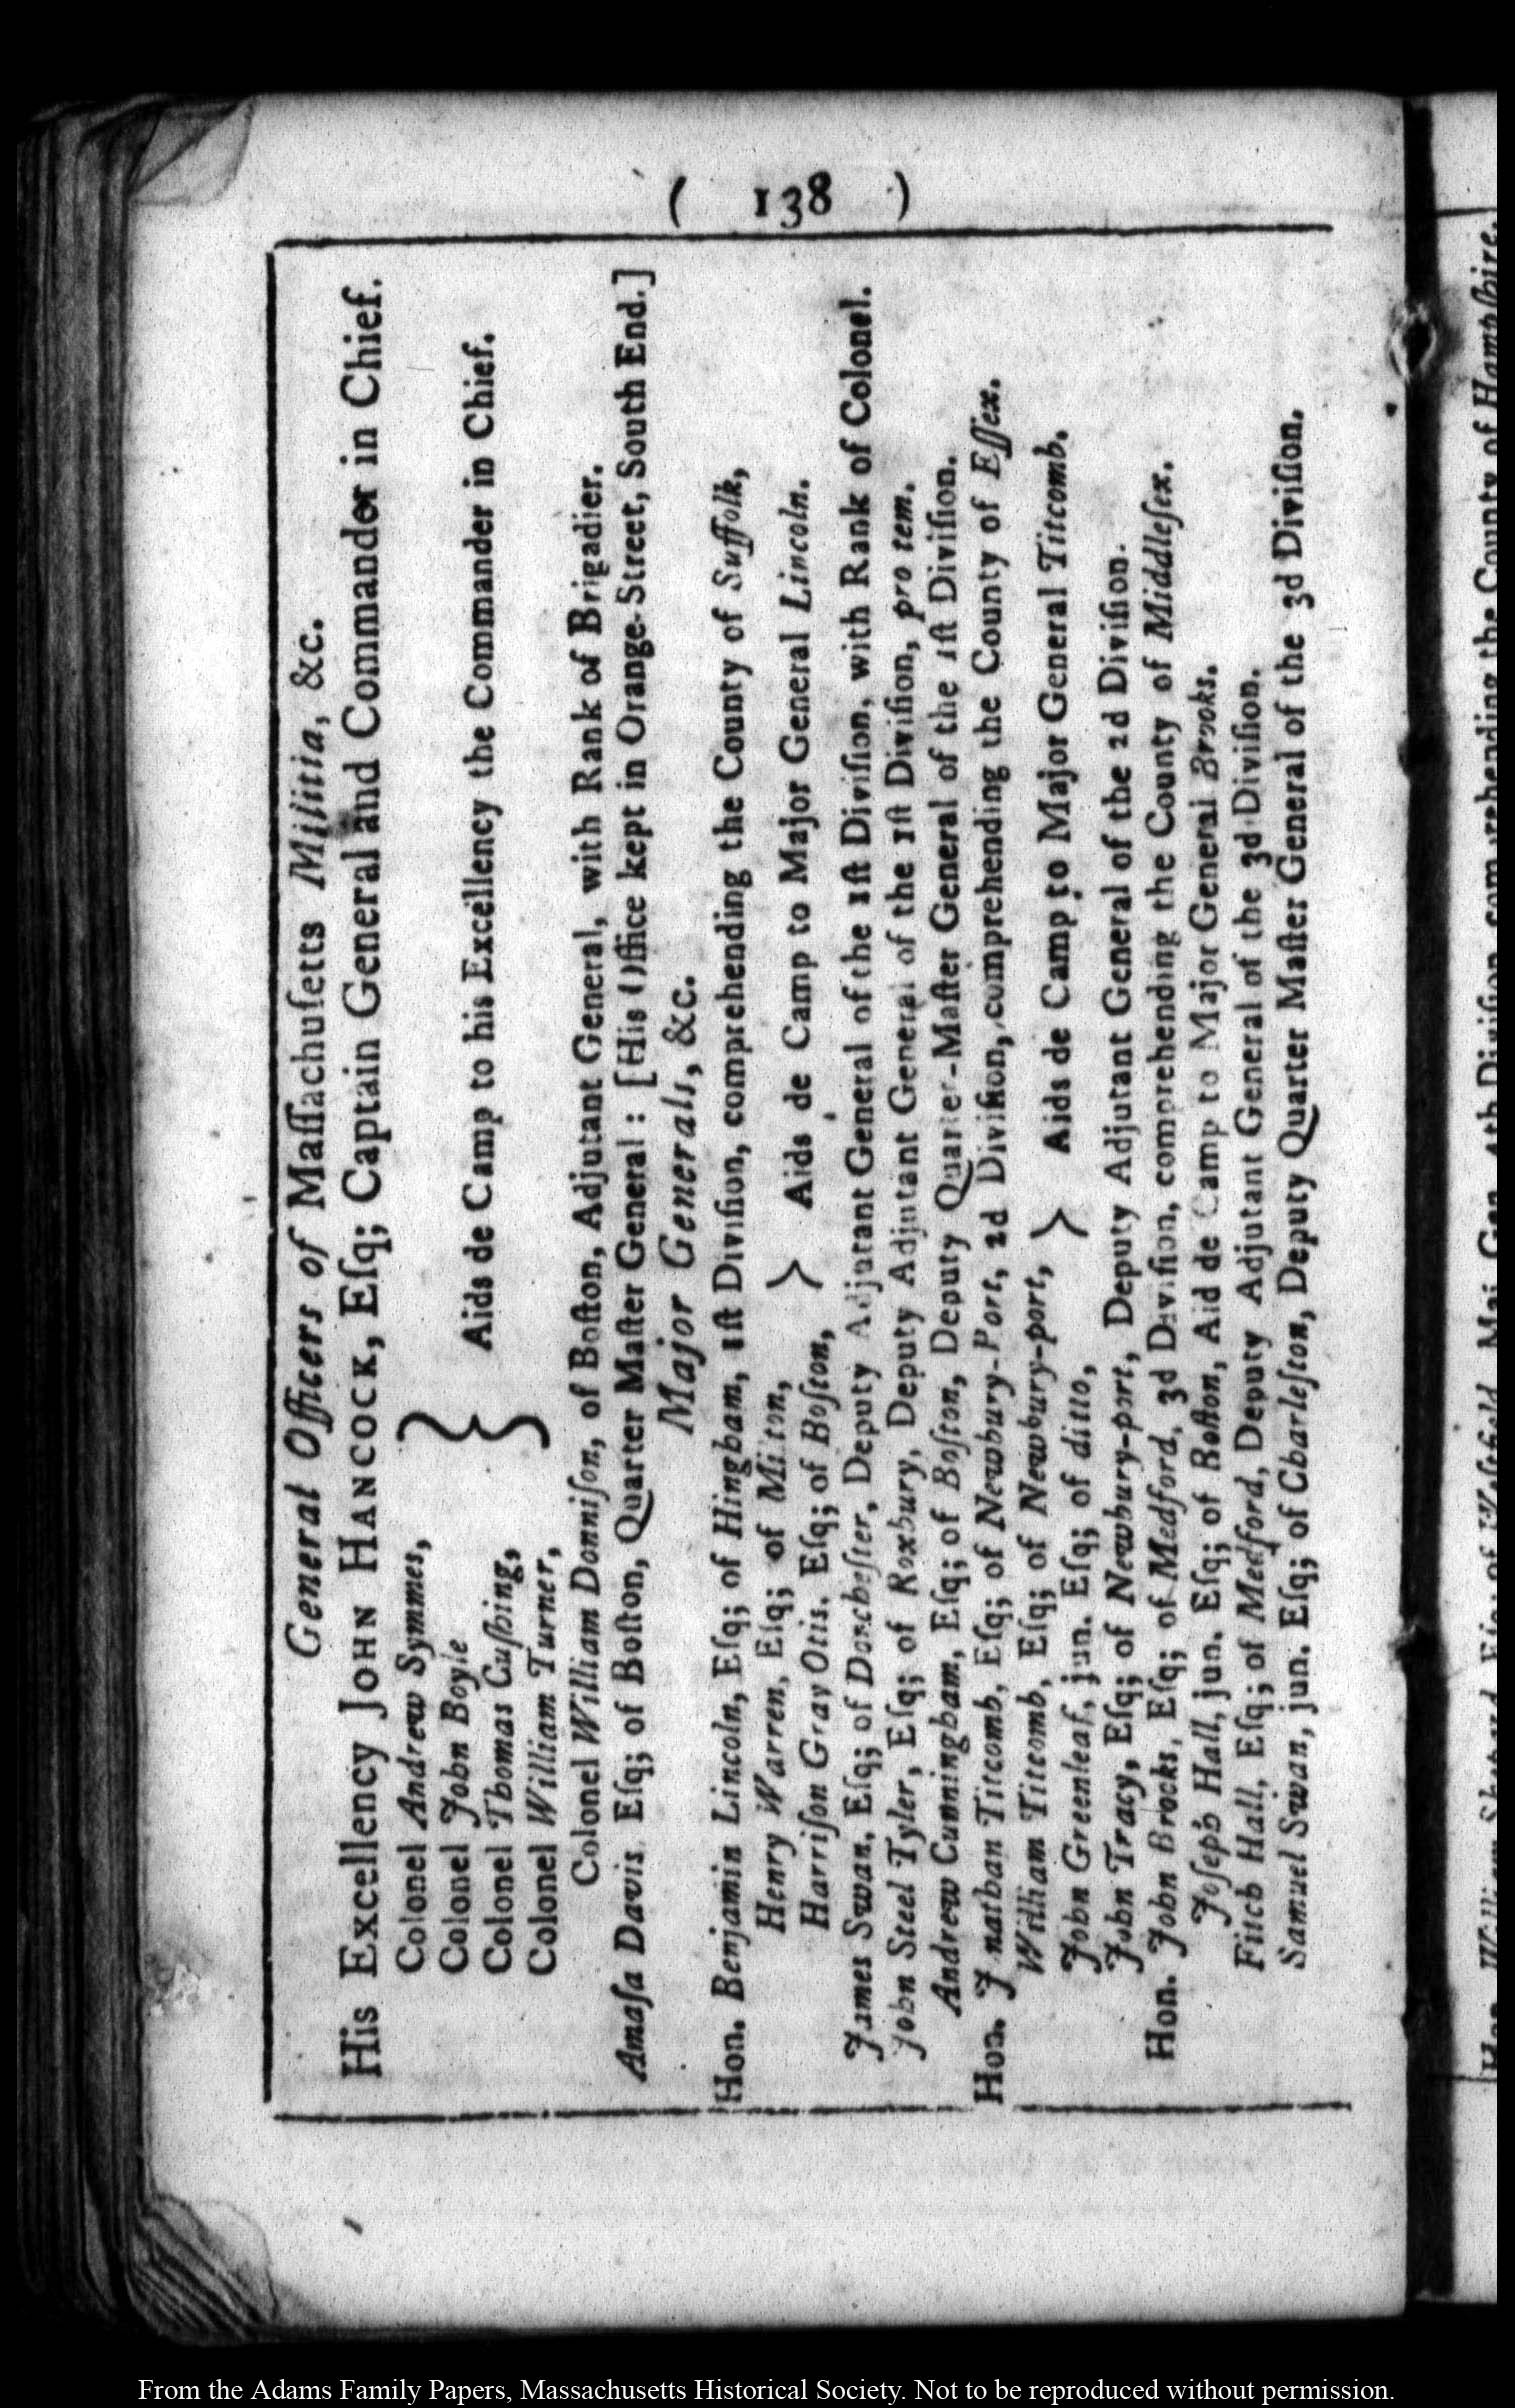 ( 138 )
General Officers of Maſſachuſetts Militia, &c.
His Excellency JOHN HANCOCK, Eſq; Captain General and Commander in Chief.
Colonel Andrew Symmes,
Colonel John Boyle
Colonel Thomas Cuſhing,
Colonel William Turner,
} Aids de Camp to his Excellency the Commander in Chief.
Colonel William Donniſon, of Boſton, Adjutant General, with Rank of Brigadier.
Amaſa Davis, Eſq; of Boſton, Quarter Maſter General : [His Office kept in Orange-Street, South End.]
Major Generals, &c.
Hon. Benjamin Lincoln, Eſq; of Hingham, 1ſt Diviſion, comprehending the County of Suffolk,
Henry Warren, Eſq; of Milton,
Harriſon Gray Otis, Eſq; of Boſton,
} Aids de Camp to Major General Lincoln.
James Swan, Eſq; of Dorcheſter, Deputy Adjutant General of the 1ſt Diviſion, with Rank of Colonel.
John Steel Tyler, Eſq; of Roxbury, Deputy Adjutant General of the 1ſt Diviſion, pro tem.
Andrew Cunningham, Eſq; of Boſton, Deputy Quarter-Maſter General of the 1ſt Diviſion.
Hon. Jonathan Titcomb, Eſq; of Newbury-Port, 2d Diviſion, comprehending the County of Eſſex.
William Titcomb, Eſq; of Newbury-port,
John Greenleaf, jun. Eſq; of ditto,
} Aids de Camp to Major General Titcomb.
John Tracy, Eſq; of Newbury-port, Deputy Adjutant General of the 2d Diviſion.
Hon. John Brooks, Eſq; of Medford, 3d Diviſion, comprehending the County of Middleſex.
Joſeph Hall, jun. Eſq; of Boſton, Aid de Camp to Major General Brooks.
Fitch Hall, Eſq; of Medford, Deputy Adjutant General of the 3d Diviſion.
Samuel Swan, jun. Eſq; of Charleſton, Deputy Quarter Maſter General of the 3d Diviſion.
Hon. William Shepard, Eſq; of Weſtfield, Maj. Gen. 4th Diviſion comprehending the County of Hampſhire.
From the Adams Family Papers, Massachusetts Historical Society. Not to be reproduced without permission.